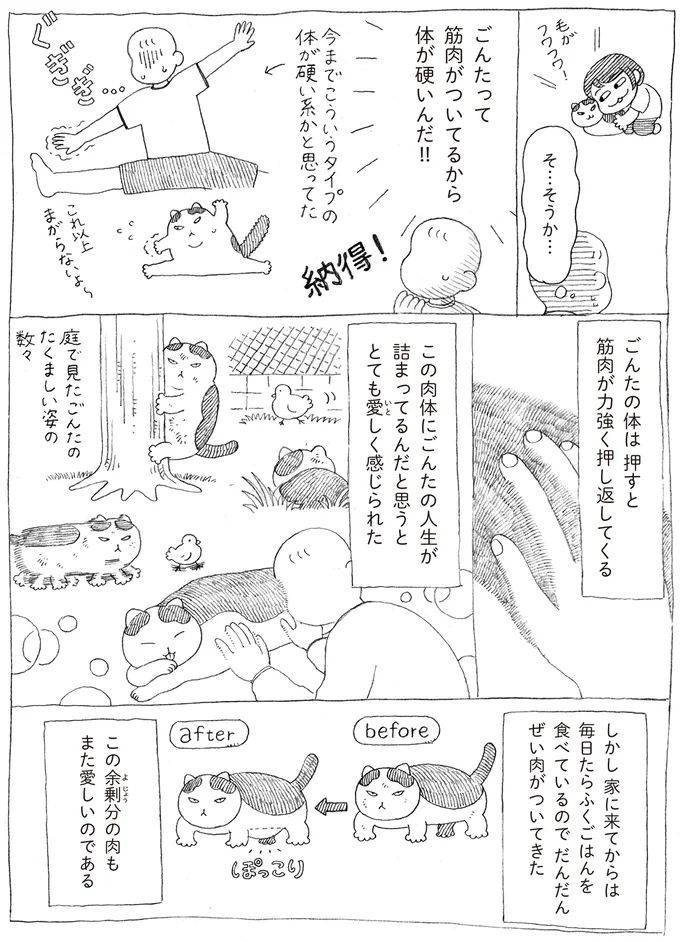 毛が
フワフワ!
そ…そうか…
ごんたって
筋肉がついてるから
体が硬いんだ!!
納得!
今までこういうタイプの
体が硬い系かと思ってた
ぐぎぎぎ…
これ以上
まがらないよ〜
ごんたの体は 押すと
筋肉が力強く押し返してくる
この肉体にごんたの人生が
詰まってるんだと思うと
とても愛しく感じられた
いと
庭で見たごんたの
たくましい姿の
数々
しかし 家に来てからは
毎日たらふくごはんを
食べているので だんだん
ぜい肉がついてきた
before
after
ぽっこり
この余剰分の肉も
よじょう
また愛しいのである